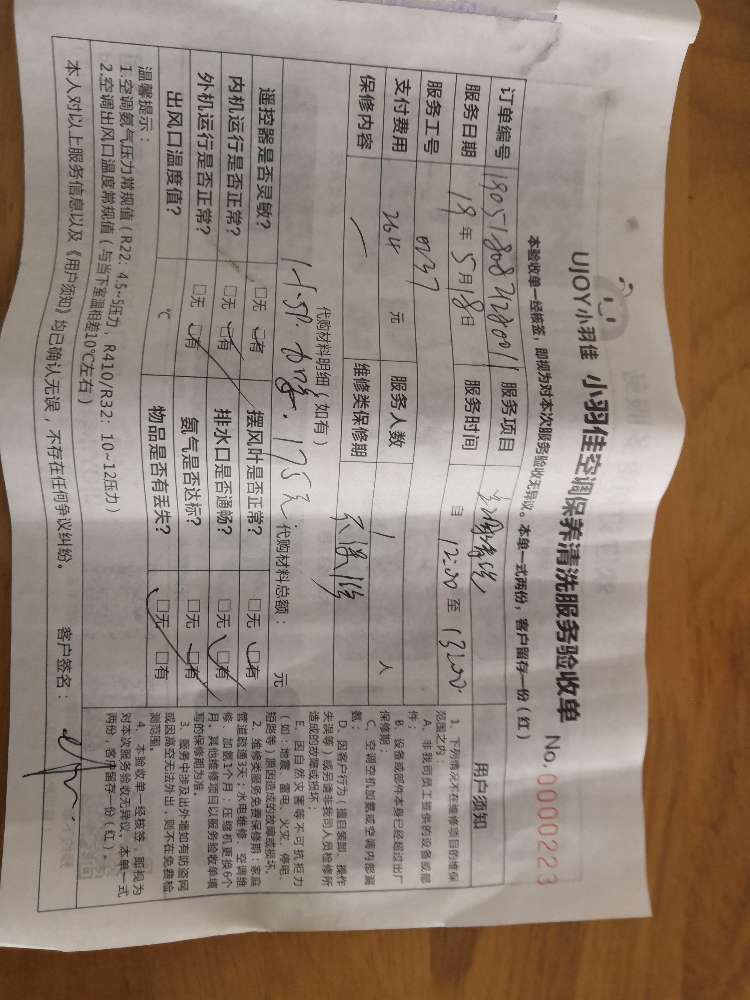 UJOY小羽佳 小羽佳空调保养清洗服务验收单 No.00000223
本验收单一经核签，即视为对本次服务验收无异议。本单一式两份，客户留存一份（红）
订单编号 服务项目
服务日期 19年5月18日 服务时间 自12:00至13:00
服务工号 0237
支付费用 264 元 服务人数 1 人
保修内容 / 维修类保修期
代购材料明细（如有）
175元 代购材料总额： 元
遥控器是否灵敏？ □无 □有 摆风叶是否正常？ □无 □有
内机运行是否正常？ □无 □有 排水口是否通畅？ □无 □有
外机运行是否正常？ □无 □有 氨气是否达标？ □无 □有
出风口温度值？ ℃ 物品是否有丢失？ □无 □有
温馨提示：
1.空调氨气压力常规值（R22：4.5~5压力，R410/R32：10~12压力）
2.空调出风口温度常规值（与当下室温相差10℃左右）
本人对以上服务信息以及《用户须知》均已确认无误，不存在任何争议纠纷。 客户签名：
用户须知
1、下列情况不在维修项目的维保
范围之内：
A、非我司员工提供的设备或部
件；
B、设备或部件本身已经超过出厂
保修期；
C、空调空机加氨或空调内部漏
氨；
D、因客户行为（擅自装卸、操作
失误等）或另请非我司人员检修所
造成的故障或损坏；
E、因自然灾害等不可抗拒力
（如：地震、雷电、火灾、停电、
短路等）原因造成的故障或损坏。
2、维修类服务免费保修期：家庭
管道疏通3天；水电维修、空调维
修、加氨1个月；压缩机更换6个
月，其他维修项目以服务验收单填
写的保修期为准。
3、服务中涉及出外墙如有防盗网
或因高空无法外出，则不在免费检
测范围。
4、本验收单一经核签，即视为
对本次服务验收无异议，本单一式
两份，客户留存一份（红）。